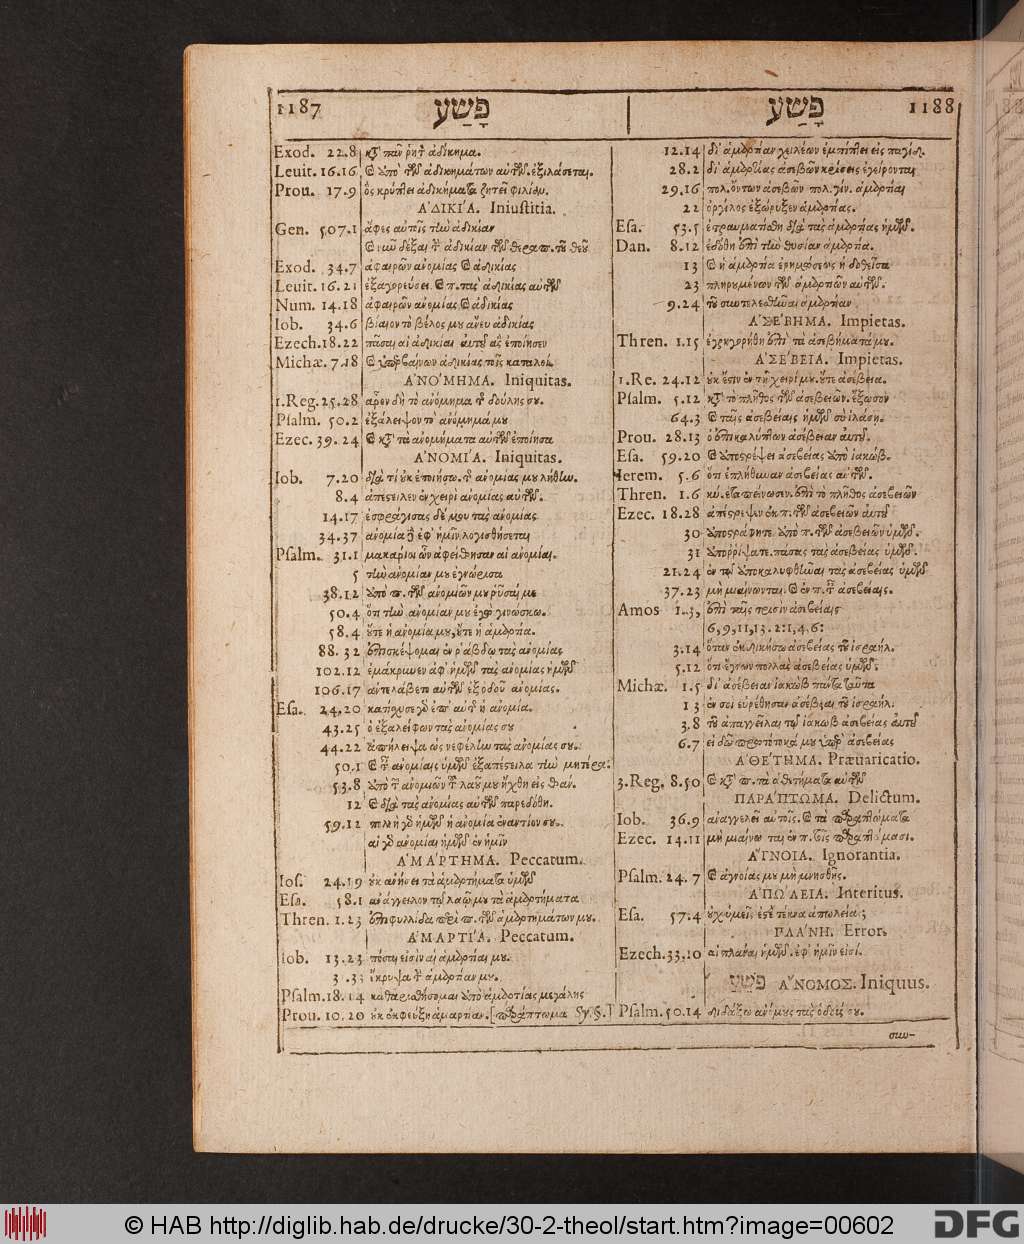 1187 פָּשַׁע
Exod. 22.8 κτ̀ πᾶν ῥητ̀ ἀδίκημα.
Leuit. 16.16 ὑπὸ τῶν ἀδικημάτων αὐτῶν. ἐξιλάσεται.
Prou. 17.9 ὃς κρύπτει ἀδικήματα ζητεῖ φιλίαν.
ἈΔΙΚΊΑ. Iniustitia.
Gen. 507.1 ἄφες αὐτοῖς τὴν ἀδικίαν
δέξαι τ̀ ἀδικίαν τῶν θεραπ. τοῦ θεοῦ
Exod. 34.7 ἀφαιρῶν ἀνομίας καὶ ἀδικίας
Leuit. 16.21 ἐξαγορεύσει καὶ π. τὰς ἀδικίας αὐτῶν
Num. 14.18 ἀφαιρῶν ἀνομίας καὶ ἀδικίας
Iob. 34.6 βίαιον τὸ βέλος μου ἄνευ ἀδικίας
Ezech. 18.22 πᾶσαι αἱ ἀδικίαι αὐτοῦ ἃς ἐποίησεν
Michæ. 7.18 καὶ ὑπερβαίνων ἀδικίας τοῖς καταλοί.
ἈΝΌΜΗΜΑ. Iniquitas.
1.Reg. 25.28 ἆρον δὴ τὸ ἀνόμημα τ̀ δούλης σου.
Psalm. 50.2 ἐξάλειψον τὸ ἀνόμημά μου
Ezec. 39.24 καὶ κτ̀ τὰ ἀνομήματα αὐτῶν ἐποίησα
ἈΝΟΜΊΑ. Iniquitas.
Iob. 7.20 διὰ τί οὐκ ἐποιήσω. τ̀ ἀνομίας μου λήθην.
8.4 ἀπέστειλεν ἐν χειρὶ ἀνομίας αὐτῶν.
14.17 ἐσφράγισας δέ μου τὰς ἀνομίας
34.37 ἀνομία δὲ ἐφ' ἡμῖν λογισθήσεται
Psalm. 31.1 μακάριοι ὧν ἀφείθησαν αἱ ἀνομίαι.
5 τὴν ἀνομίαν μου ἐγνώρισα
38.12 ὑπὸ π. τῶν ἀνομιῶν μου ῥῦσαί με
50.4 ὅτι τὴν ἀνομίαν μου ἐγὼ γινώσκω.
58.4 οὔτε ἡ ἀνομία μου, οὔτε ἡ ἁμαρτία.
88.32 ἐπισκέψομαι ἐν ῥάβδῳ τὰς ἀνομίας
102.12 ἐμάκρυνεν ἀφ' ἡμῶν τὰς ἀνομίας ἡμῶν
106.17 ἀντελάβετο αὐτῶν ἐξ ὁδοῦ ἀνομίας.
Esa. 24.20 κατίσχυσε γὰρ ἐπ' αὐτ̀ ἡ ἀνομία.
43.25 ὁ ἐξαλείφων τὰς ἀνομίας σου
44.22 ἀπήλειψα ὡς νεφέλην τὰς ἀνομίας σου.
50.1 καὶ τ̀ ἀνομίαις ὑμῶν ἐξαπέστειλα τὴν μητέρα.
53.8 ὑπὸ τ̀ ἀνομιῶν τ̀ λαοῦ μου ἤχθη εἰς θάν.
12 καὶ διὰ τὰς ἀνομίας αὐτῶν παρεδόθη.
59.12 πολλὴ γὰρ ἡμῶν ἡ ἀνομία ἐναντίον σου.
αἱ γὰρ ἀνομίαι ἡμῶν ἐν ἡμῖν
ἉΜΆΡΤΗΜΑ. Peccatum.
Ios. 24.19 οὐκ ἀνήσει τὰ ἁμαρτήματα ὑμῶν
Esa. 58.1 ἀνάγγειλον τῷ λαῷ μου τὰ ἁμαρτήματα
Thren. 1.23 ἐπιφυλλίδα περὶ π. τῶν ἁμαρτημάτων μου.
ἉΜΑΡΤΊΑ. Peccatum.
Iob. 13.23 πόσαι εἰσὶν αἱ ἁμαρτίαι μου.
31.33 ἔκρυψα τ̀ ἁμαρτίαν μου.
Psalm. 18.14 καθαρισθήσομαι ὑπὸ ἁμαρτίας μεγάλης
Prou. 10.20 οὐκ ἐκφεύξῃ ἁμαρτίαν. [παράπτωμα Sy. §.]
פָּשַׁע 1188
12.14 δι' ἁμαρτίαν χειλέων ἐμπίπτει εἰς παγίδ.
28.2 δι' ἁμαρτίας ἀσεβῶν κρίσεις ἐγείρονται
29.16 πολ. ὄντων ἀσεβῶν πολ. γίν. ἁμαρτίαι
22 ὀργίλος ἐξώρυξεν ἁμαρτίας.
Esa. 53.5 ἐτραυματίσθη διὰ τὰς ἁμαρτίας ἡμῶν.
Dan. 8.12 ἐδόθη ἐπὶ τὴν θυσίαν ἁμαρτία.
13 καὶ ἡ ἁμαρτία ἐρημώσεως ἡ δοθεῖσα
23 πληρουμένων τῶν ἁμαρτιῶν αὐτῶν.
9.24 τοῦ συντελεσθῆναι ἁμαρτίαν
ἈΣΈΒΗΜΑ. Impietas.
Thren. 1.15 ἐγρηγορήθη ἐπὶ τὰ ἀσεβήματά μου.
ἈΣΈΒΕΙΑ. Impietas.
1.Re. 24.12 οὐκ ἔστιν ἐν τῇ χειρί μου. οὔτε ἀσέβεια.
Psalm. 5.12 κτ̀ τὸ πλῆθος τῶν ἀσεβειῶν. ἔξωσον
64.3 καὶ ταῖς ἀσεβείαις ἡμῶν σὺ ἱλάσῃ.
Prou. 28.13 ὁ ἐπικαλύπτων ἀσέβειαν αὐτοῦ.
Esa. 59.20 καὶ ἀποστρέψει ἀσεβείας ἀπὸ ἰακώβ.
Ierem. 5.6 ὅτι ἐπλήθυναν ἀσεβείας αὐτῶν.
Thren. 1.6 κύ. ἐταπείνωσεν. ἐπὶ τὸ πλῆθος ἀσεβειῶν
Ezec. 18.28 ἀπέστρεψεν ἐκ π. τῶν ἀσεβειῶν αὐτοῦ
30 ἀποστράφητε ἀπὸ π. τῶν ἀσεβειῶν ὑμῶν.
31 ἀπορρίψατε. πάσας τὰς ἀσεβείας ὑμῶν.
21.24 ἐν τῷ ἀποκαλυφθῆναι τὰς ἀσεβείας ὑμῶν
37.23 μὴ μιαίνωνται. καὶ ἐν π. τ̀ ἀσεβείαις.
Amos 1.3, ἐπὶ ταῖς τρισὶν ἀσεβείαις
6, 9, 11, 13. 2:1, 4. 6:
3.14 ὅταν ἐκδικήσω ἀσεβείας τοῦ ἰσραήλ.
5.12 ὅτι ἔγνων πολλὰς ἀσεβείας ὑμῶν.
Michæ. 1.5 δι' ἀσέβειαν ἰακὼβ πάντα ταῦτα
13 ἐν σοὶ εὑρέθησαν ἀσέβειαι τοῦ ἰσραήλ.
3.8 τοῦ ἀπαγγεῖλαι τῷ ἰακὼβ ἀσεβείας αὐτοῦ
6.7 εἰ δῶ πρωτότοκά μου ὑπὲρ ἀσεβείας
ἈΘΈΤΗΜΑ. Præuaricatio.
3.Reg. 8.50 καὶ κτ̀ π. τὰ ἀθετήματα αὐτῶν
ΠΑΡΆΠΤΩΜΑ. Delictum.
Iob. 36.9 ἀναγγελεῖ αὐτοῖς. καὶ τὰ παραπτώματα
Ezec. 14.11 μὴ μιαίνωνται ἐν π. τοῖς παραπτώμασι.
ἌΓΝΟΙΑ. Ignorantia.
Psalm. 24.7 καὶ ἀγνοίας μου μὴ μνησθῇς.
ἈΠΏΛΕΙΑ. Interitus.
Esa. 57.4 οὐχ ὑμεῖς ἐστὲ τέκνα ἀπωλείας;
ΠΛΆΝΗ. Error.
Ezech. 33.10 αἱ πλάναι ἡμῶν. ἐφ' ἡμῖν εἰσί.
פֹּשֵׁעַ ἌΝΟΜΟΣ. Iniquus.
Psalm. 50.14 διδάξω ἀνόμους τὰς ὁδούς σου.
συν-
© HAB http://diglib.hab.de/drucke/30-2-theol/start.htm?image=00602
DFG